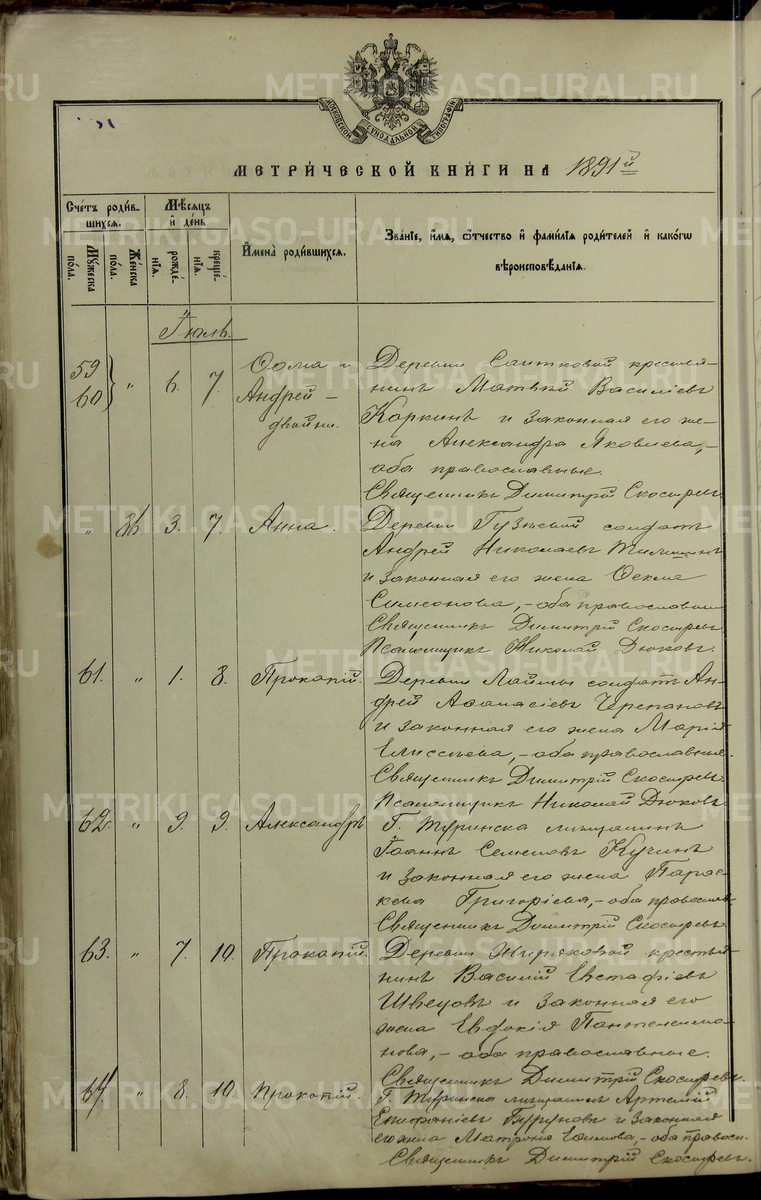 МОСКОВСКОЙ СѴНОДАЛЬНОЙ ТИПОГРАФІИ
МЕТРИ́ЧЕСКОЙ КНИ́ГИ НА 1891й
Сче́тъ роди́в- шихся.
Мѣ́сяцъ и де́нь
Мꙋ́жеска по́ла.
Же́нска по́ла.
рожде́- нїя.
креще́- нїя.
И҆мена̀ роди́вшихся.
Зва́нїе, и҆́мя, ѻ҆́тчество и҆ фами́лїя роди́телей и҆ како́гѡ
вѣроисповѣ́данїя.
Іюль.
59 60 „ 6. 7. Ѳома и Андрей – двойни.
Деревни Саитковой крестья-
нинъ Матвѣй Василіевъ
Коркинъ и законная его же-
на Александра Яковлева, –
оба православные.
Священникъ Димитрій Скосыревъ.
„ 36. 3. 7. Анна.
Деревни солдатъ
Андрей Николаевъ
и законная его жена Ѳекла
Симеонова, – оба православные
Священникъ Димитрій Скосыревъ
Псаломщикъ Николай Дюковъ.
61. „ 1. 8. Прокопій.
Деревни Лаймы солдатъ Ан-
дрей Аѳанасіевъ Черепановъ
и законная его жена Марія
Елисеева, – оба православные.
Священникъ Димитрій Скосыревъ
Псаломщикъ Николай Дюковъ
62. „ 9. 9. Александръ
Г. Туринска мѣщанинъ
Іоаннъ Семеновъ Кучинъ
и законная его жена Парас-
кева Григоріева, – оба православн.
Священникъ Димитрій Скосыревъ
63. „ 7. 10. Прокопій.
Деревни Жиряковой крестья-
нинъ Василій Евстафіевъ
Швецовъ и законная его
жена Евдокія Пантелеимо-
нова, – оба православные.
Священникъ Димитрій Скосыревъ.
64 „ 8. 10 Прокопій.
Г. Туринска мѣщанинъ Артемій
Епифаніевъ Буруновъ и законная
его жена Матрона Евѳимова, – оба правосл.
Священникъ Димитрій Скосыревъ.
METRIKI.GASO-URAL.RU